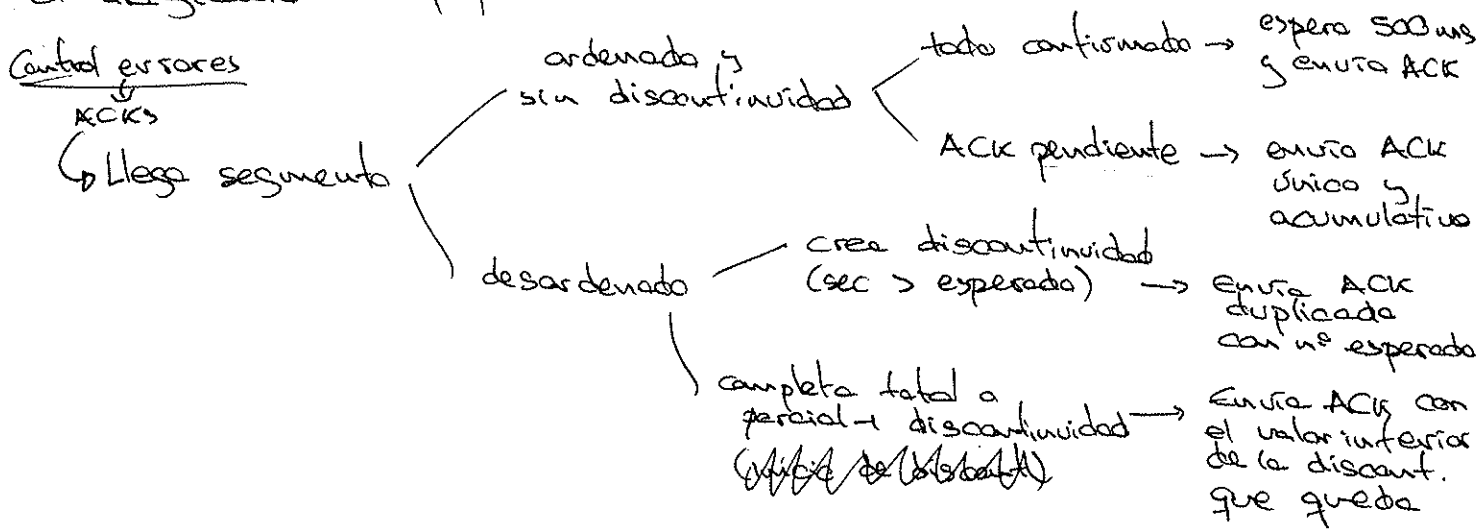 Control errores
ACKs
Llega segmento
ordenado y
sin discontinuidad
todo confirmado → espera 500 ms
y envía ACK
ACK pendiente → envío ACK
único y
acumulativo
desordenado
crea discontinuidad
(sec > esperado) → Envía ACK
duplicado
con nº esperado
completa total o
parcial discontinuidad → Envía ACK con
el valor inferior
de la discont.
que queda